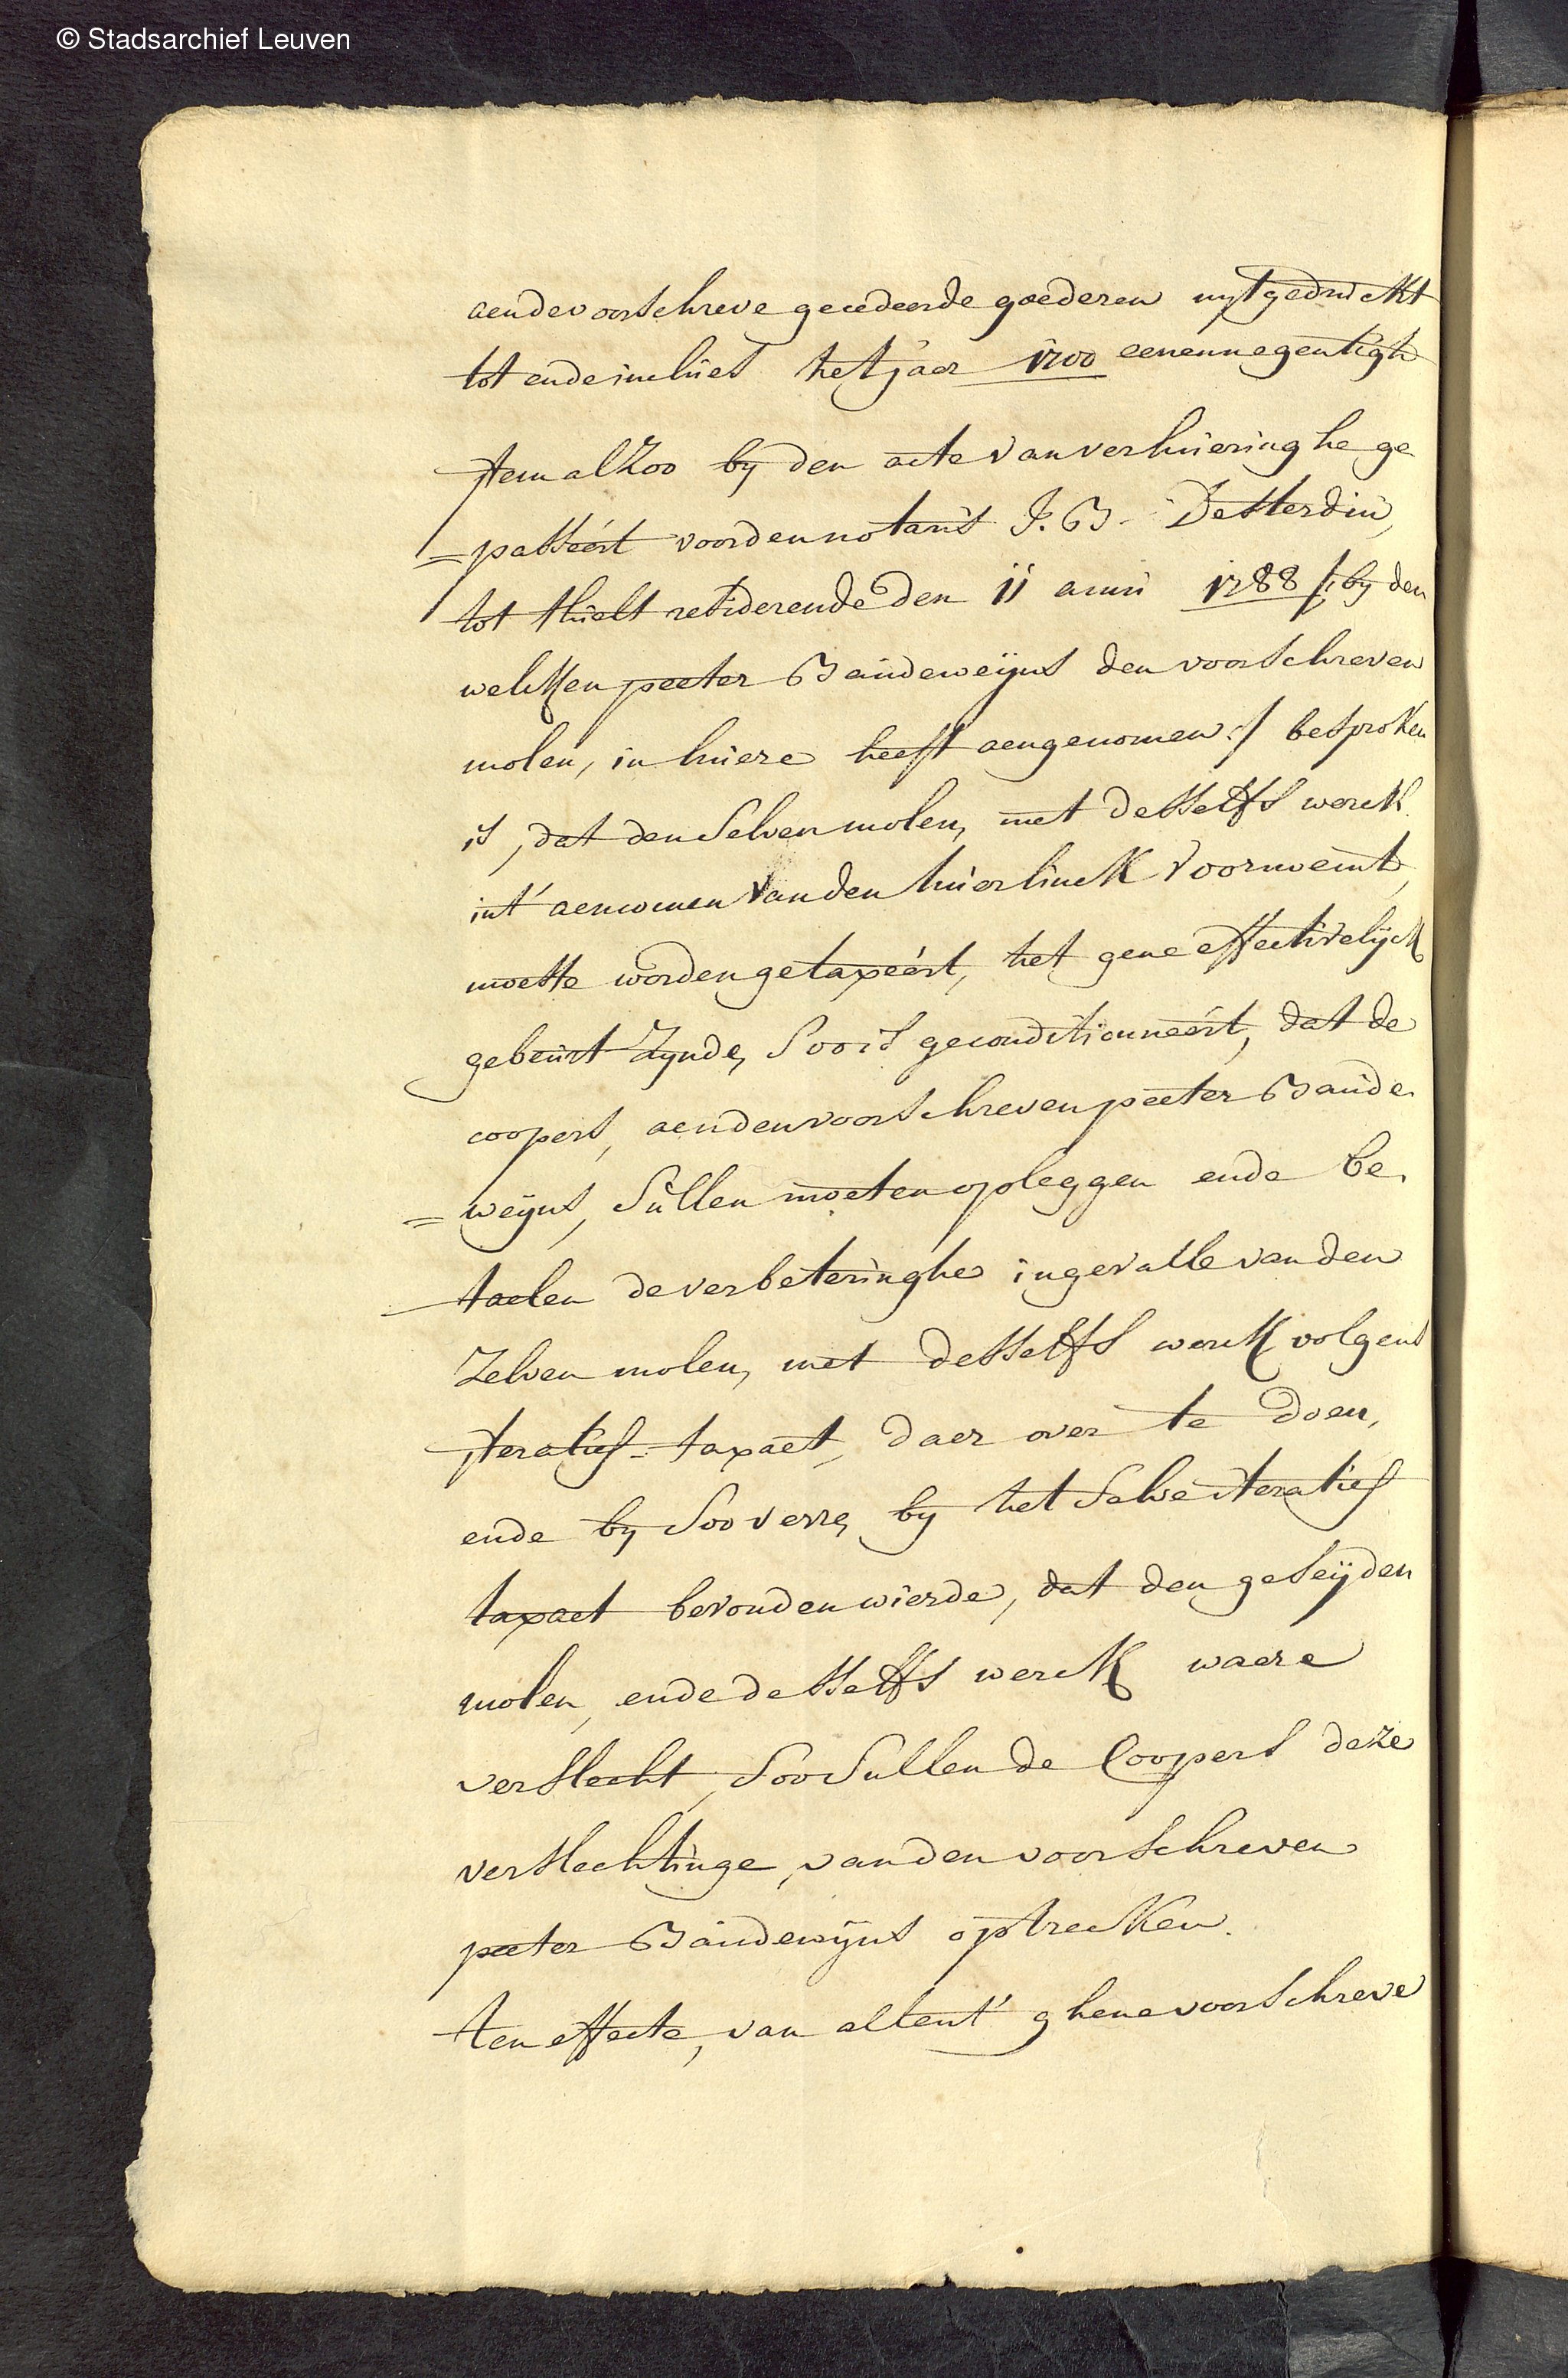 © Stadsarchief Leuven
aendevoorschreve gecedeerde goederen uytgedruckt
tot ende inclúes het jaer 1700 eenennegentigh
item alzoo by den acte van verhúeringhe ge
= passéért voor den notaris J. B. Desterdin,
tot thielt residerende den 11 
1788 /: by den
welcken peeter Baúdeweÿns den voorschreven
molen, in húere heeft aengenomen :/ besproken
is, dat den selven molen, met desselfs werck
int' aencomen van den húerlinck voornoemt,
moeste worden getaxéért, het gene effectivelyck
gebeúrt zynde, soo is geconditionnéért, dat de
coopers, aen den voorschreven peeter Baúde
= weÿns, súllen moeten opleggen ende be
taelen de verbeteringhe ingevalle van den
zelven molen, met desselfs werck volgens
iteratief-taxaet, daer over te doen,
ende by soo verre, by het selve iteratief
taxaet bevonden wierde, dat den geseÿden
molen, ende desselfs werck waere
verslecht, soo sullen de coopers deze
verslechtinge, van den voorschreven
peeter Baúdewÿns optrecken.
ten effecte, van all'ent' ghene voorschreve